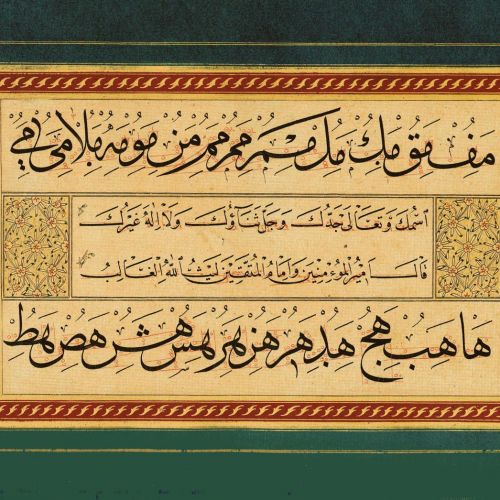 مف مق مك مل مم من مو مه ملا مى مي
اسمك وتعالى جدك وجل ثناؤك ولا اله غيرك
قال امير المؤمنين وامام المتقين ليث الله الغالب
ها هب هج هد هر هز هر هس هش هص هط